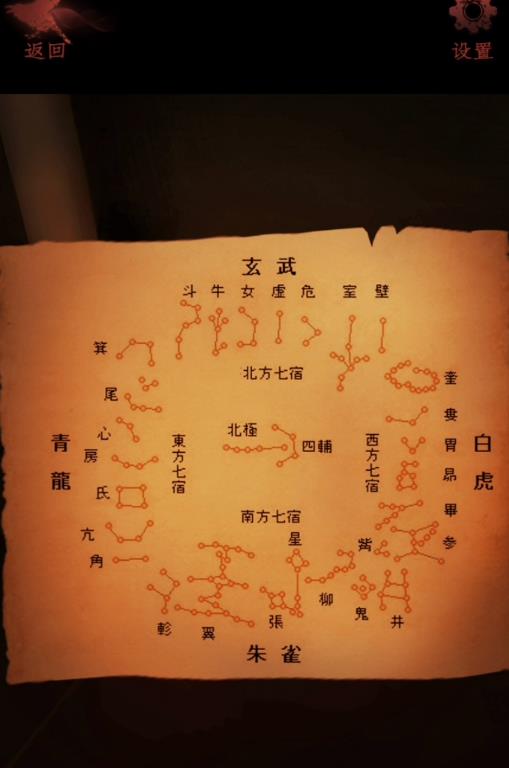 返回
设置
玄武
斗 牛 女 虚 危 室 壁
箕
尾
心
房
氐
亢
角
青龍
東方七宿
北方七宿
北極
四輔
南方七宿
西方七宿
奎
婁
胃
昴
畢
参
觜
白虎
星
軫
翼
張
柳
鬼
井
朱雀